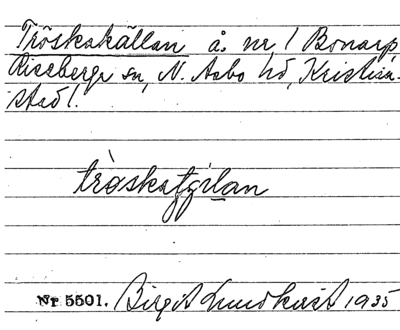 Tröskakällan å nr 1 Bonarp
Riseberga sn, N. Åsbo hd, Kristian-
stad l.
tròskatjylan
Nr 5501. Birgit Lundkvist 1935